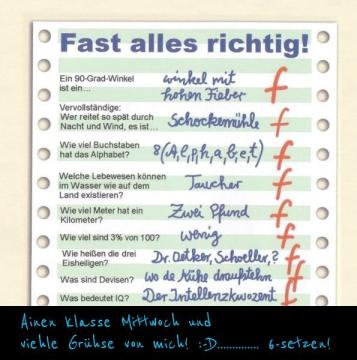 Fast alles richtig!
Ein 90-Grad-Winkel
ist ein...
winkel mit
hohen Fieber
f
Vervollständige:
Wer reitet so spät durch
Nacht und Wind, es ist...
Schockemühle
f
Wie viel Buchstaben
hat das Alphabet?
8 (A,l,p,h,a,b,e,t)
f
Welche Lebewesen können
im Wasser wie auf dem
Land existieren?
Taucher
f
Wie viel Meter hat ein
Kilometer?
Zwei Pfund
f
Wie viel sind 3% von 100?
wenig
f
Wie heißen die drei
Eisheiligen?
Dr. Oetker, Schoeller, ?
f
Was sind Devisen?
wo de Kühe draufstehn
f
Was bedeutet IQ?
Der Intellenzkwozent
f
Ainen Klasse Mittwoch und
viehle Grühse von mich! :-D.............. 6-setzen!